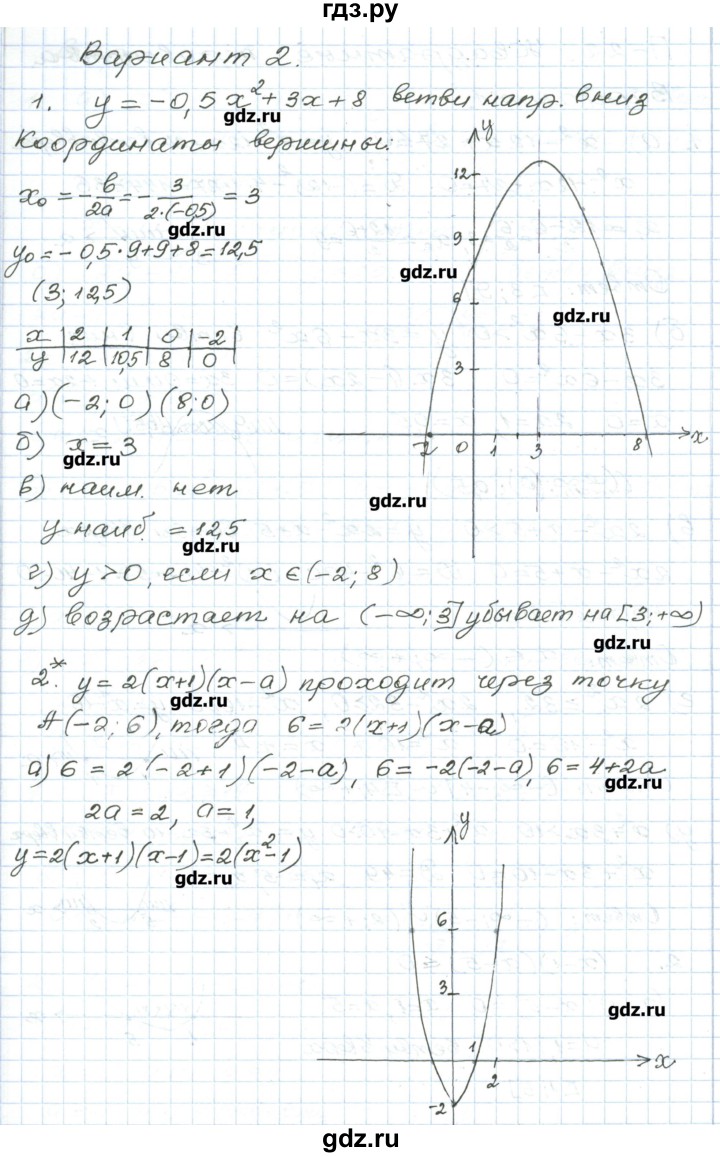 гдз.ру
Вариант 2.
1. y = -0,5x² + 3x + 8 ветви напр. вниз
gdz.ru
Координаты вершины:
x₀ = -b/2a = -3/2·(-0,5) = 3
gdz.ru
y₀ = -0,5·9+9+8 = 12,5
(3; 12,5)
x | 2 | 1 | 0 | -2 |
y | 12 | 10,5 | 8 | 0 |
а) (-2; 0) (8; 0)
б) x = 3
gdz.ru
в) наим. нет
y наиб. = 12,5
gdz.ru
г) y > 0, если x ∈ (-2; 8)
д) возрастает на (-∞; 3] убывает на [3; +∞)
gdz.ru
y
12
9
gdz.ru
6
gdz.ru
3
-2 0 1 3 8 x
gdz.ru
2*. y = 2(x+1)(x-a) проходит через точку
gdz.ru
A(-2; 6), тогда 6 = 2(x+1)(x-a)
а) 6 = 2(-2+1)(-2-a), 6 = -2(-2-a), 6 = 4+2a
gdz.ru
2a = 2, a = 1,
y = 2(x+1)(x-1) = 2(x²-1)
gdz.ru
y
6
3
gdz.ru
1
2
x
-2
gdz.ru